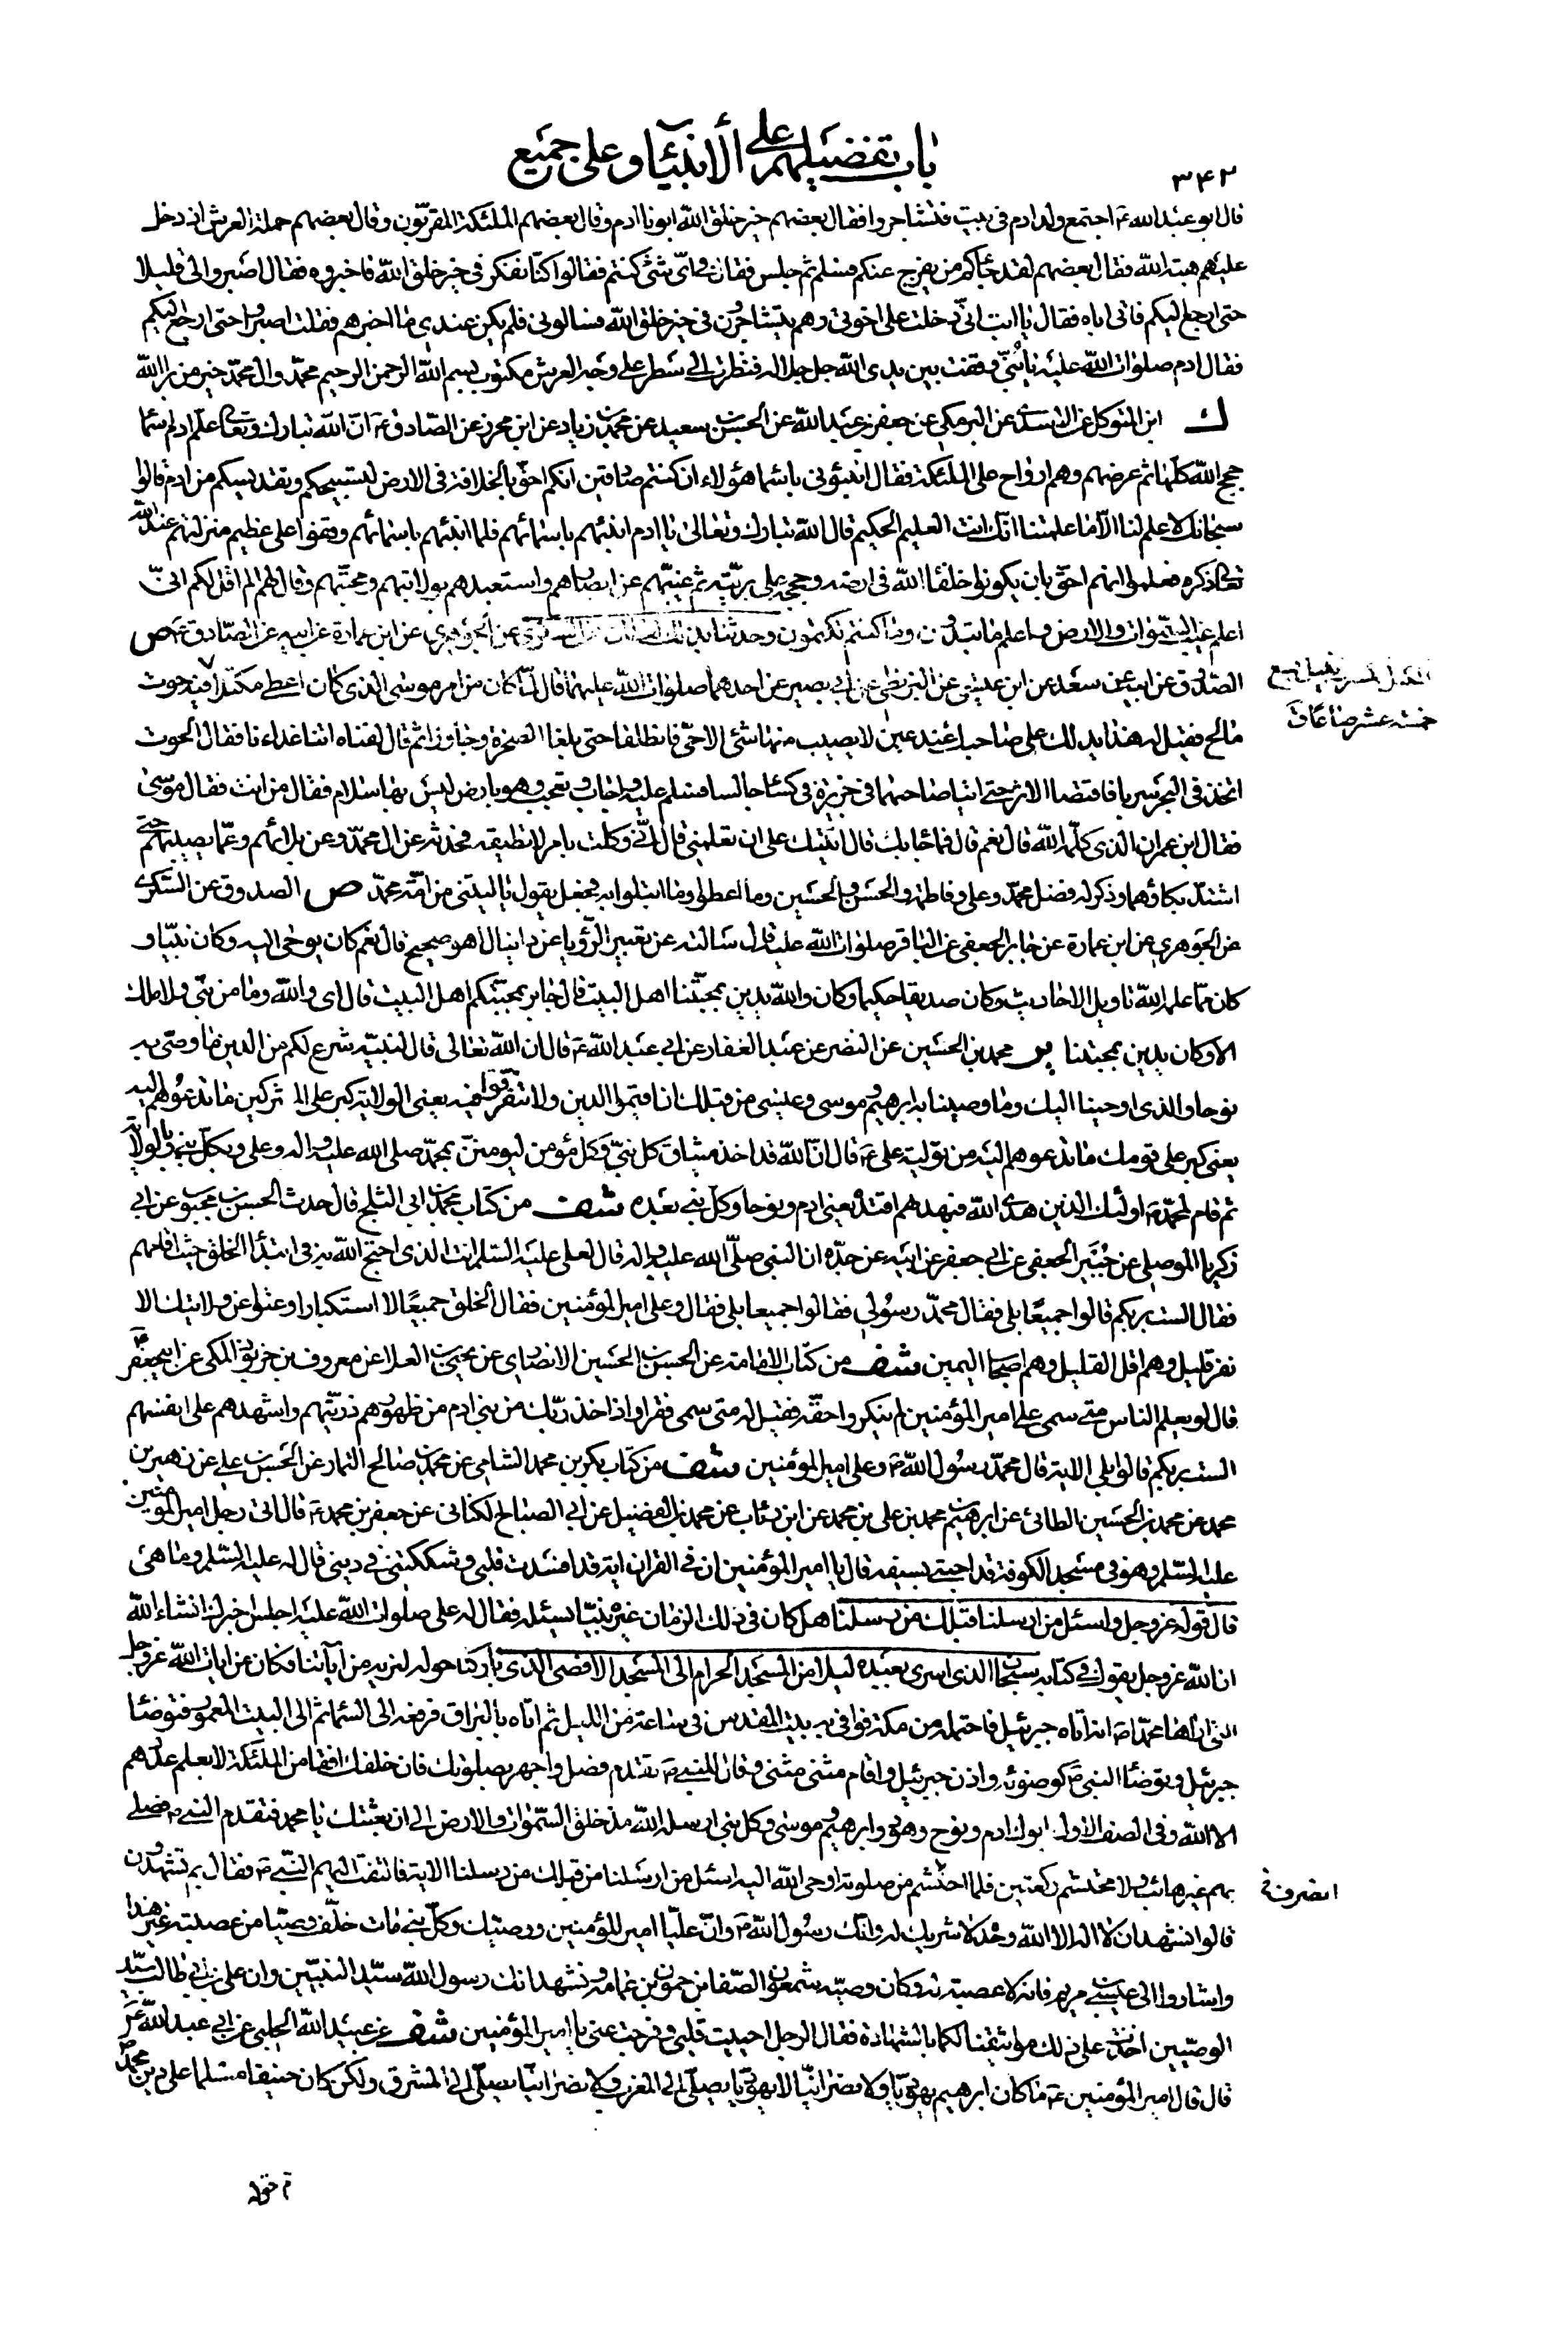 باب تفضيلهم على الأنبياء و على جميع
٣٤٢
قال ابو عبد الله ع اجتمع ولد ادم فى بيت فتشاجروا فقال بعضهم خير خلق الله ابونا ادم و قال بعضهم الملئكة المقربون و قال بعضهم حملة العرش اذ دخل
عليهم هبة الله فقال بعضهم لقد جاءكم من يفرج عنكم فسلم ثم جلس فقال فى اى شئ كنتم فقالوا كنا نفكر فى خير خلق الله فاخبروه فقال اصبروا لى قليلا
حتى ارجع اليكم فاتى اباه فقال يا ابت انى دخلت على اخوتى و هم يتشاجرون فى خير خلق الله فسالونى فلم يكن عندى ما اخبرهم فقلت اصبروا حتى ارجع اليكم
فقال ادم صلوات الله عليه يا بنى وقفت بين يدى الله جل جلاله فنظرت الى سطر على وجه العرش مكتوب بسم الله الرحمن الرحيم محمد و ال محمد خير من برا الله
ك ابن المتوكل عن الاسدى عن البرمكى عن جعفر بن عبد الله عن الحسن بن سعيد عن محمد بن زياد عن ابن محرز عن الصادق ع ان الله تبارك و تعالى علم ادم اسما
حجج الله كلها ثم عرضهم و هم ارواح على الملئكة فقال انبئونى باسما هؤلاء ان كنتم صادقين انكم احق بالخلافة فى الارض لتسبيحكم و تقديسكم من ادم قالوا
سبحانك لا علم لنا الا ما علمتنا انك انت العليم الحكيم قال الله تبارك و تعالى يا ادم انبئهم باسمائهم فلما انبئهم باسمائهم وقفوا على عظيم منزلتهم عند الله
تعالى ذكره فعلموا انهم احق بان يكونوا خلفاء الله فى ارضه و حججه على بريته ثم غيبهم عن ابصارهم و استعبدهم بولايتهم و محبتهم و قال لهم الم اقل لكم انى
اعلم غيب السموات و الارض و اعلم ما تبدون و ما كنتم تكتمون و حدثنا بذلك عن الجوهرى عن ابن عمارة عن ابيه عن الصادق ع ص
الصدوق عن ابيه عن سعد عن ابن عيسى عن البزنطى عن ابى بصير عن احدهما صلوات الله عليهما قال لما كان من امر موسى الذى كان اعطى مكتلا فيه حوت
خمسة عشر صاعا ق
مالح فقيل له هذا يدلك على صاحبك عند عين لا يصيب منها شئ الا حى فانطلقا حتى بلغا الصخرة و جاوزا ثم قال لفتاه اتنا غداءنا فقال الحوت
اتخذ فى البحر سربا فاقتصا الاثر حتى اتيا صاحبهما فى جزيرة فى كساء جالسا فسلم عليه و اجاب و تعجب و هو بارض ليس بها سلام فقال من انت فقال موسى
فقال ابن عمران الذى كلمه الله قال نعم قال فما جاء بك قال اتيتك على ان تعلمنى قال انى وكلت بامر لا تطيقه فحدثه عن ال محمد و عن بلائهم و عما يصيبهم حتى
اشتد بكاؤهما و ذكر له فضل محمد و على و فاطمة و الحسن و الحسين و ما اعطوا و ما ابتلوا به فجعل يقول يا ليتنى من امة محمد ص الصدوق عن السكرى
عن الجوهرى عن ابن عمارة عن جابر الجعفى عن الباقر صلوات الله عليه قال سالته عن تعبير الرؤيا عن دانيال اهو صحيح قال نعم كان يوحى اليه و كان نبيا و
كان مما علمه الله تاويل الاحاديث و كان صديقا حكيما و كان و الله يدين بمحبتنا اهل البيت قال جابر بمحبتكم اهل البيت قال اى و الله و ما من نبى و لا ملك
الا و كان يدين بمحبتنا ير محمد بن الحسين عن النضر عن عبد الغفار عن ابى عبد الله ع قال ان الله تعالى قال لنبيه شرع لكم من الدين ما وصى به
نوحا و الذى اوحينا اليك و ما وصينا به ابرهيم و موسى و عيسى من قبلك ان اقيموا الدين و لا تتفرقوا فيه يعنى الولاية كبر على المشركين ما تدعوهم اليه
يعنى كبر على قومك ما تدعوهم اليه من تولية على ع قال ان الله قد اخذ ميثاق كل نبى و كل مؤمن ليومنن بمحمد صلى الله عليه و اله و على و بكل نبى و بالولاية
ثم قال لمحمد ص اولئك الذين هدى الله فبهداهم اقتده يعنى ادم و نوحا و كل نبى بعده شف من كتاب محمد بن ابى الثلج قال حدث الحسن بن محبوب عن ابى
زكريا الموصلى عن جابر الجعفى عن ابى جعفر عن ابيه عن جده ان النبى صلى الله عليه و اله قال لعلى عليه السلم انت الذى احتج الله به فى ابتدا الخلق حيث اقامهم
فقال الست بربكم قالوا جميعا بلى فقال محمد رسولى فقالوا جميعا بلى فقال و على امير المؤمنين فقال الخلق جميعا لا استكبارا و عتوا عن ولايتك الا
نفر قليل و هم اقل القليل و هم اصحاب اليمين شف من كتاب الامامة عن الحسن بن الحسين الانصارى عن يحيى بن العلا عن معروف بن خربوذ المكى عن ابى جعفر ع
قال لو يعلم الناس متى سمى على امير المؤمنين لم ينكروا حقه فقيل له متى سمى فقرا و اذ اخذ ربك من بنى ادم من ظهورهم ذريتهم و اشهدهم على انفسهم
الست بربكم قالوا بلى الاية قال محمد رسول الله ص و على امير المؤمنين شف من كتاب بكر بن محمد الشامى عن محمد بن صالح التمار عن الحسن بن على عن زهير بن
محمد عن محمد بن الحسين الطائى عن ابرهيم بن محمد بن على بن محمد عن ابن رئاب عن محمد بن الفضيل عن ابى الصباح الكنانى عن جعفر بن محمد ع قال اتى رجل امير المؤمنين
عليه السلم و هو فى مسجد الكوفة قد احتبى بسيفه قال يا امير المؤمنين ان فى القران اية قد افسدت قلبى و شككتنى فى دينى قال له عليه السلم و ما هى
قال قوله عز و جل و اسئل من ارسلنا قبلك من رسلنا هل كان فى ذلك الزمان غيره نبيا يسئله فقال له على صلوات الله عليه اجلس اخبرك انشاء الله
ان الله عز و جل يقول فى كتابه سبحان الذى اسرى بعبده ليلا من المسجد الحرام الى المسجد الاقصى الذى باركنا حوله لنريه من آياتنا فكان من ايات الله عز و جل
التى اراها محمدا ص انه اتاه جبرئيل فاحتمله من مكة فوافى به بيت المقدس فى ساعة من الليل ثم اتاه بالبراق فرفعه الى السماء ثم الى البيت المعمور فتوضا
جبرئيل و توضا النبى ص كوضوئه و اذن جبرئيل و اقام مثنى مثنى و قال للنبى ص تقدم فصل و اجهر بصلوتك فان خلفك افقا من الملئكة لا يعلم عددهم
الا الله و فى الصف الاول ابوك ادم و نوح و هود و ابرهيم و موسى و كل نبى ارسله الله مذ خلق السموات و الارض الى ان بعثك يا محمد فتقدم النبى ص فصلى
بهم غير هائب و لا محتشم ركعتين فلما انصرف من صلوته اوحى الله اليه اسئل من ارسلنا من قبلك من رسلنا الاية فالتفت اليهم النبى ص فقال بم تشهدون
انصرف
قالوا نشهد ان لا اله الا الله وحده لا شريك له و انك رسول الله ص و ان عليا امير المؤمنين و وصيك و كل نبى مات خلف وصيا من عصبته غير هذا
و اشاروا الى عيسى بن مريم فانه لا عصبة له و كان وصيه شمعون الصفا بن حمون بن عمامة و نشهد انك رسول الله سيد النبيين و ان على بن ابى طالب سيد
الوصيين اخذت على ذلك مواثيقنا لكما بالشهادة فقال الرجل احييت قلبى و فرجت عنى يا امير المؤمنين شف عن عبيد الله الحلبى عن ابى عبد الله ع
قال قال امير المؤمنين ع ما كان ابرهيم يهوديا و لا نصرانيا لا يهوديا يصلى الى المغرب و لا نصرانيا يصلى الى المشرق و لكن كان حنيفا مسلما على دين محمد ص